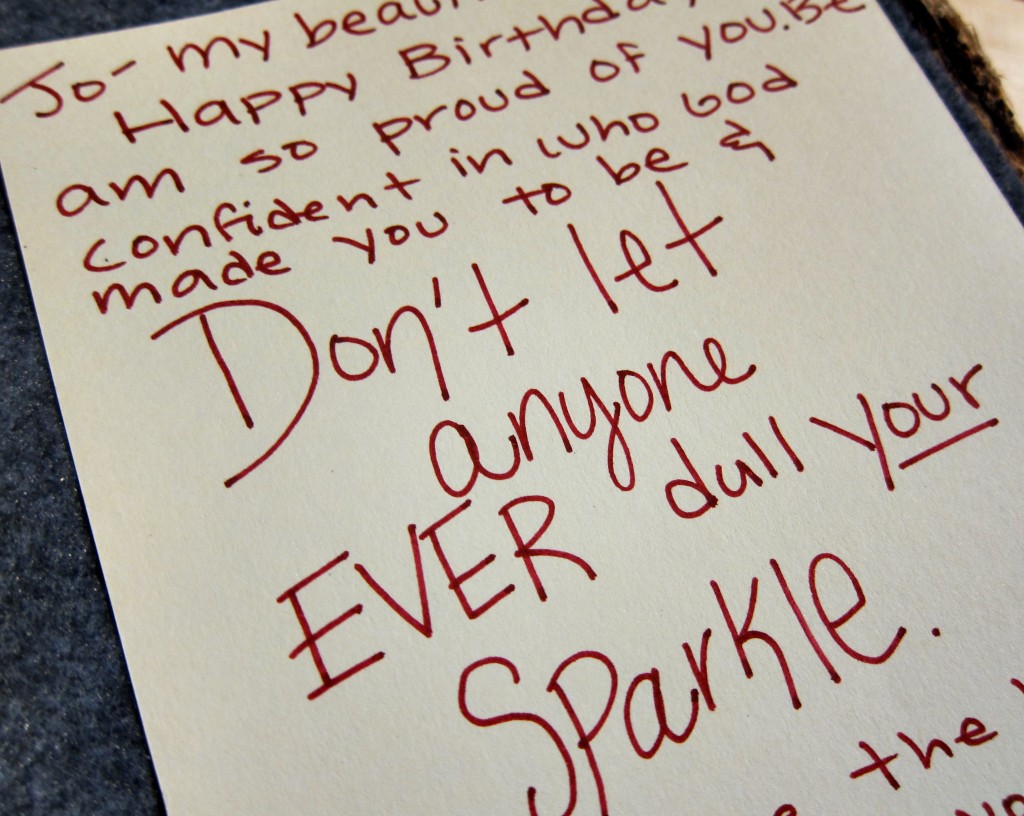 To- my
Happy Birthday
am so proud of you. Be
confident in who God
made you to be &
Don't let
anyone
EVER dull your
Sparkle.
the